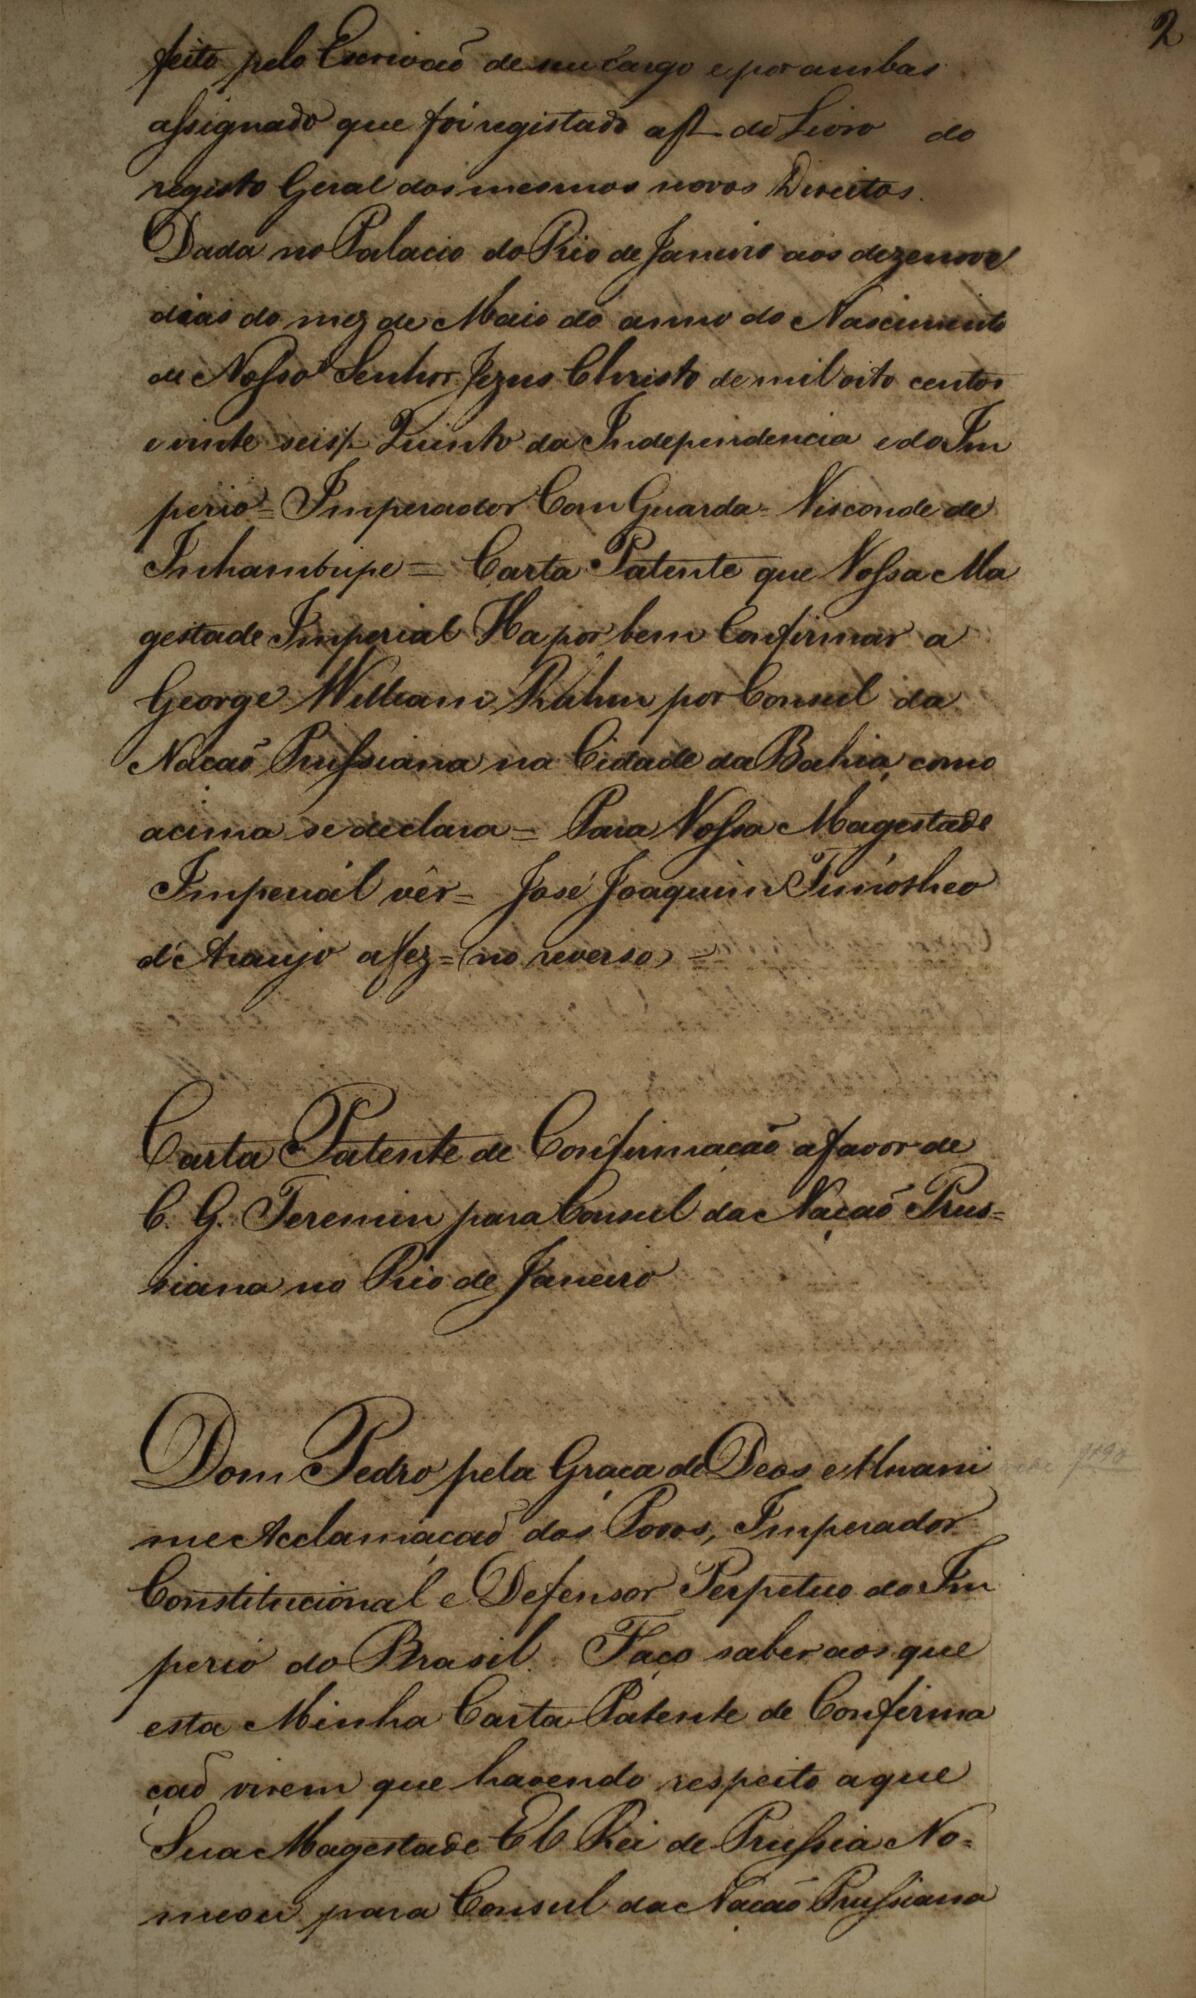 2
feito pelo Escrivaõ de seu cargo e por ambas
assignado que foi registado a f do Livro do
registo Geral dos mesmos novos Direitos.
Dada no Palacio do Rio de Janeiro aos dezenove
dias do mez de Maio do anno do Nascimento
de Nosso Senhor Jezus Christo de mil oito centos
e vinte seis Quinto da Independencia e do Im
perio = Imperador Com Guarda = Visconde de
Inhambupe = Carta Patente que Vossa Ma
gestade Imperial Ha por bem Confirmar a
George William por Consul da
Nacaõ Prussiana na Cidade da Bahia, como
acima se declara = Para Vossa Magestade
Imperial vêr = José Joaquim Timotheo
d'Araujo a fez = (no reverso) =
Carta Patente de Confirmaçaõ a favor de
C. G. Teremin para Consul da Naçaõ Prus=
siana no Rio de Janeiro
Dom Pedro pela Graça de Deos e Unani
me Acclamaçaõ dos Povos, Imperador
Constitucional e Defensor Perpetuo do Im
perio do Brasil. Faço saber aos que
esta Minha Carta Patente de Confirma
çaõ virem que havendo respeito a que
Sua Magestade El Rei de Prussia No=
meou para Consul da Nacaõ Prussiana